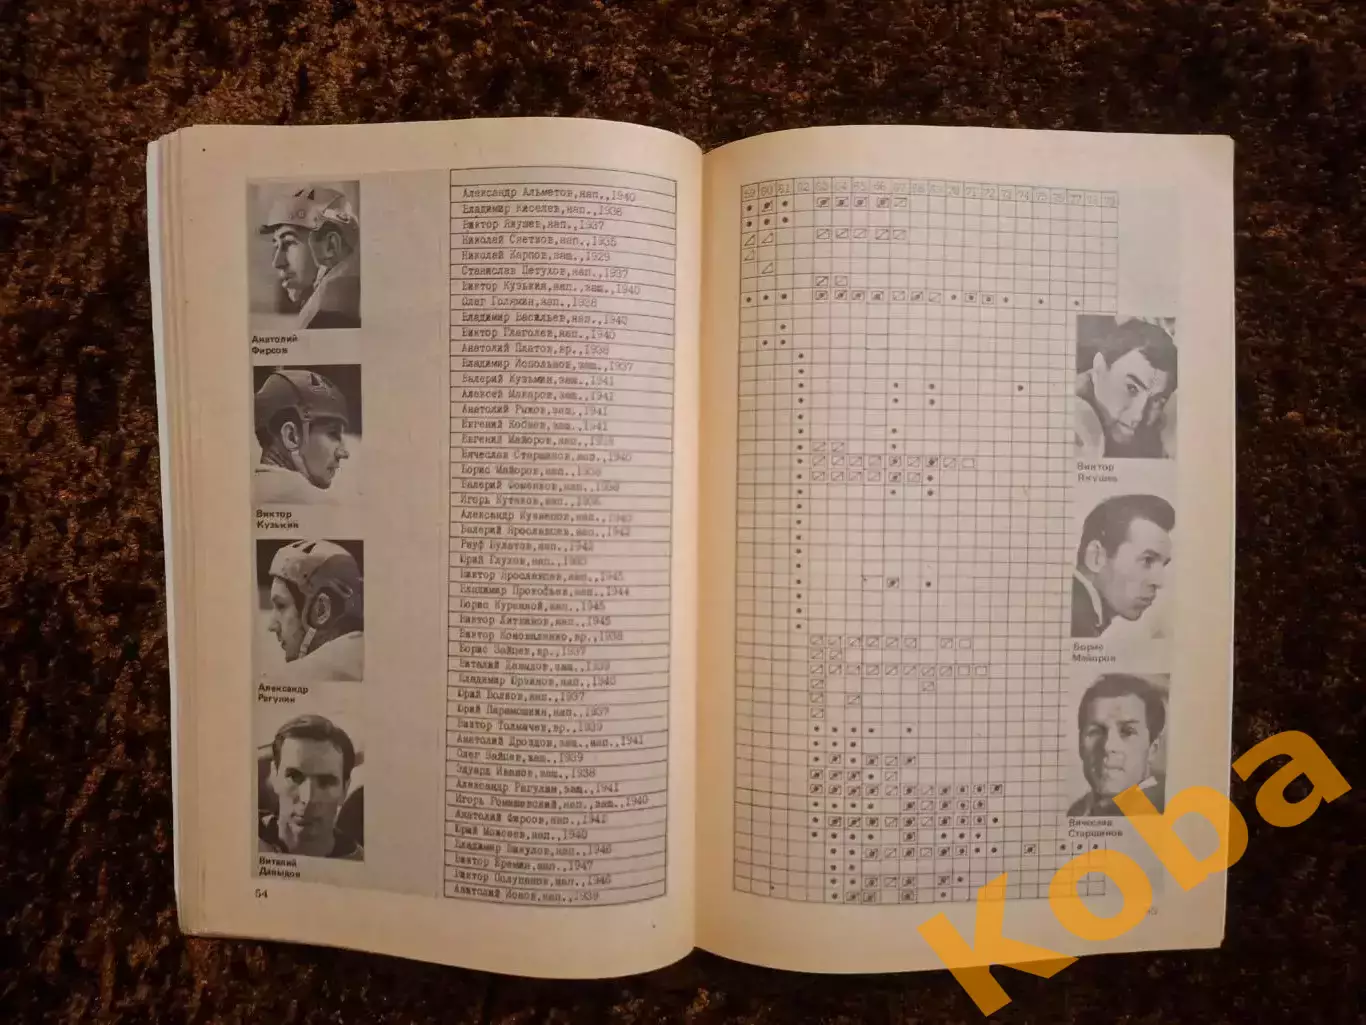 Анатолий
Фирсов
Виктор
Кузькин
Александр
Рагулин
Виталий
Давыдов
54
Александр Альметов,нап.,1940
Владимир Киселев,нап.,1938
Виктор Якушев,нап.,1937
Николай Снетков,нап.,1935
Николай Карпов,защ.,1929
Станислав Петухов,нап.,1937
Виктор Кузькин,нап.,защ.,1940
Олег Голямин,нап.,1938
Владимир Васильев,нап.,1940
Виктор Глаголев,нап.,1940
Анатолий Платов,вр.,1938
Владимир Испольнов,защ.,1937
Валерий Кузьмин,защ.,1941
Алексей Макаров,защ.,1941
Анатолий Рыжов,защ.,1941
Евгений защ.,1941
Евгений Майоров,нап.,1938
Вячеслав Старшинов,нап.,1940
Борис Майоров,нап.,1938
Валерий Фоменков,нап.,1938
Игорь
Александр Кузнецов,нап.,1940
Валерий Ярославцев,нап.,1942
Рауф Булатов,нап.,1942
Юрий Глухов,нап.,
Виктор Ярославцев,нап.,1945
Владимир Прокофьев,нап.,1944
Борис Куренной,нап.,1945
Виктор Литвинов,нап.,1945
Виктор Коноваленко,вр.,1938
Борис Зайцев,вр.,1937
Виталий Давыдов,защ.,1939
Владимир Юрзинов,нап.,1940
Юрий Волков,нап.,1937
Юрий Парамошкин,нап.,1937
Виктор Толмачев,вр.,1939
Анатолий Дроздов,защ.,нап.,1941
Олег Зайцев,защ.,1939
Эдуард Иванов,защ.,1938
Александр Рагулин,защ.,1941
Игорь Ромишевский,нап.,защ.,1940
Анатолий Фирсов,нап.,1941
Юрий Моисеев,нап.,1940
Владимир Викулов,нап.,1946
Виктор Еремин,нап.,1947
Виктор Полупанов,нап.,1946
Анатолий Ионов,нап.,1939
59 60 61 62 63 64 65 66 67 68 69 70 71 72 73 74 75 76 77 78 79
Виктор
Якушев
Борис
Майоров
Вячеслав
Старшинов
Koba